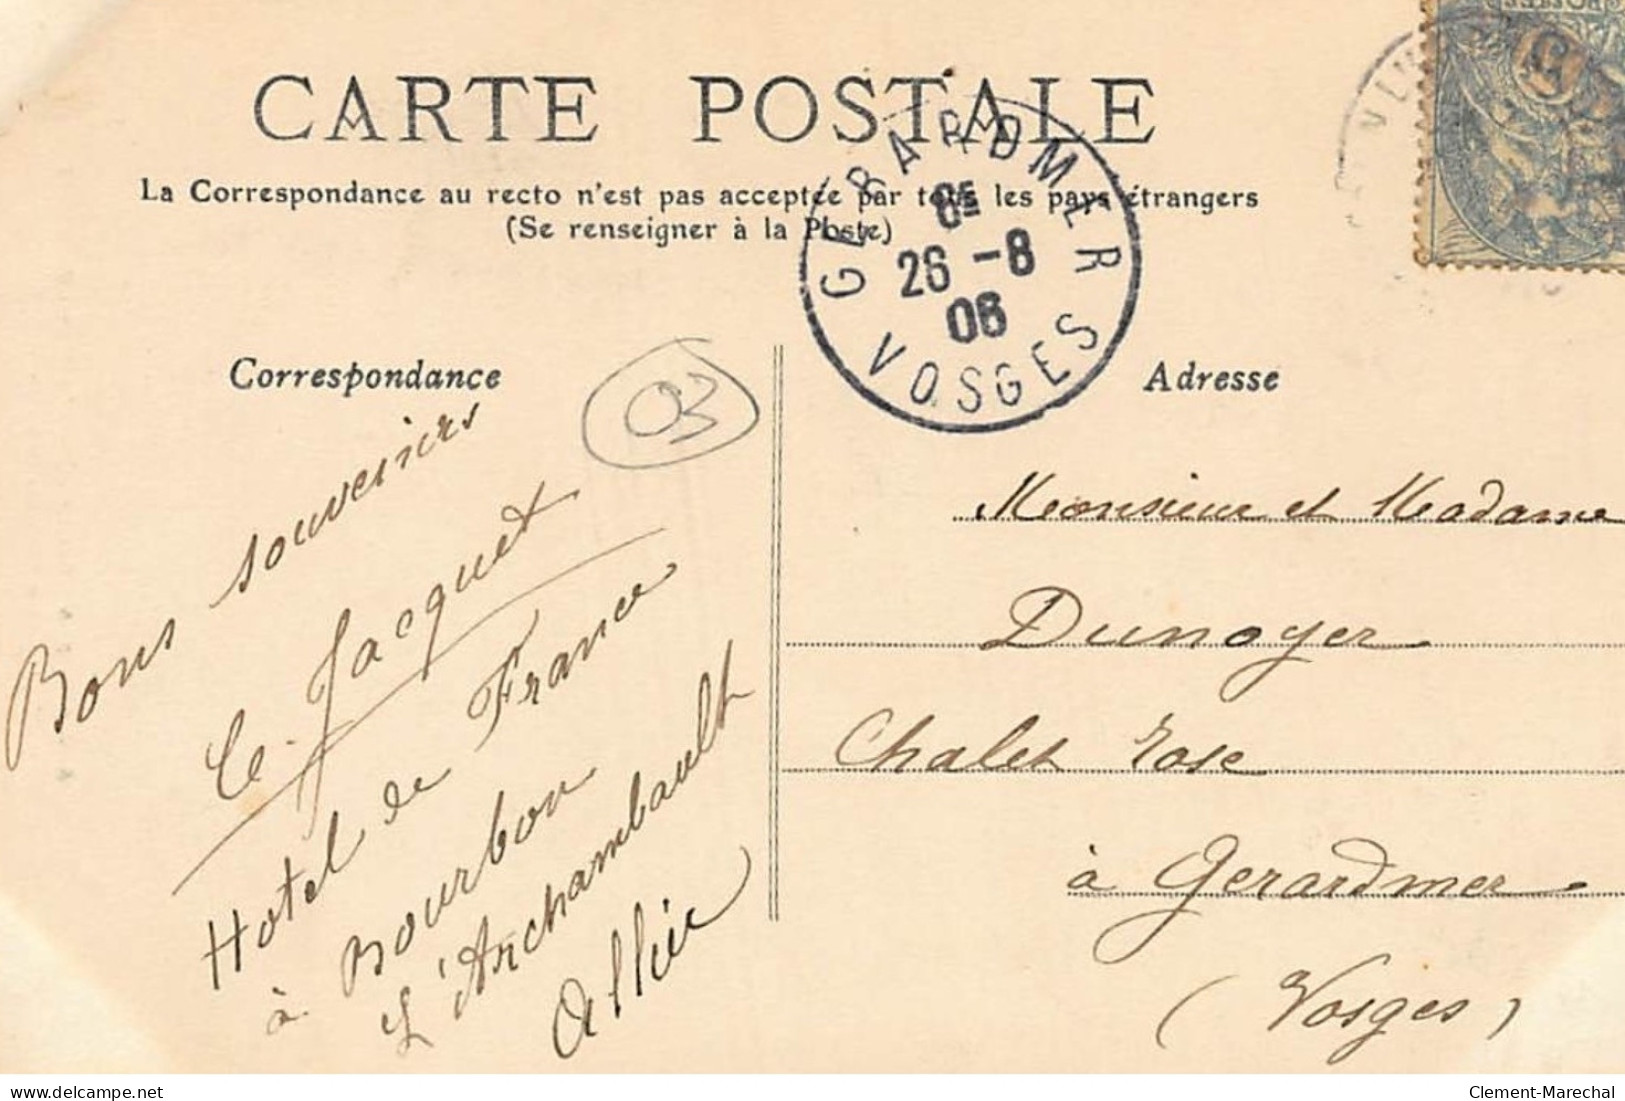 CARTE POSTALE
La Correspondance au recto n'est pas acceptée par tous les pays étrangers
(Se renseigner à la Poste)
GERARDMER
8E
26 -8
06
VOSGES
Correspondance
03
Bons souvenirs
Jacquet
Hotel de France
à Bourbon
L'Archambault
Allier
Adresse
Monsieur et Madame
Dunoyer
Chalet rose
à Gerardmer
(Vosges)
delcampe.net
Clement-Marechal